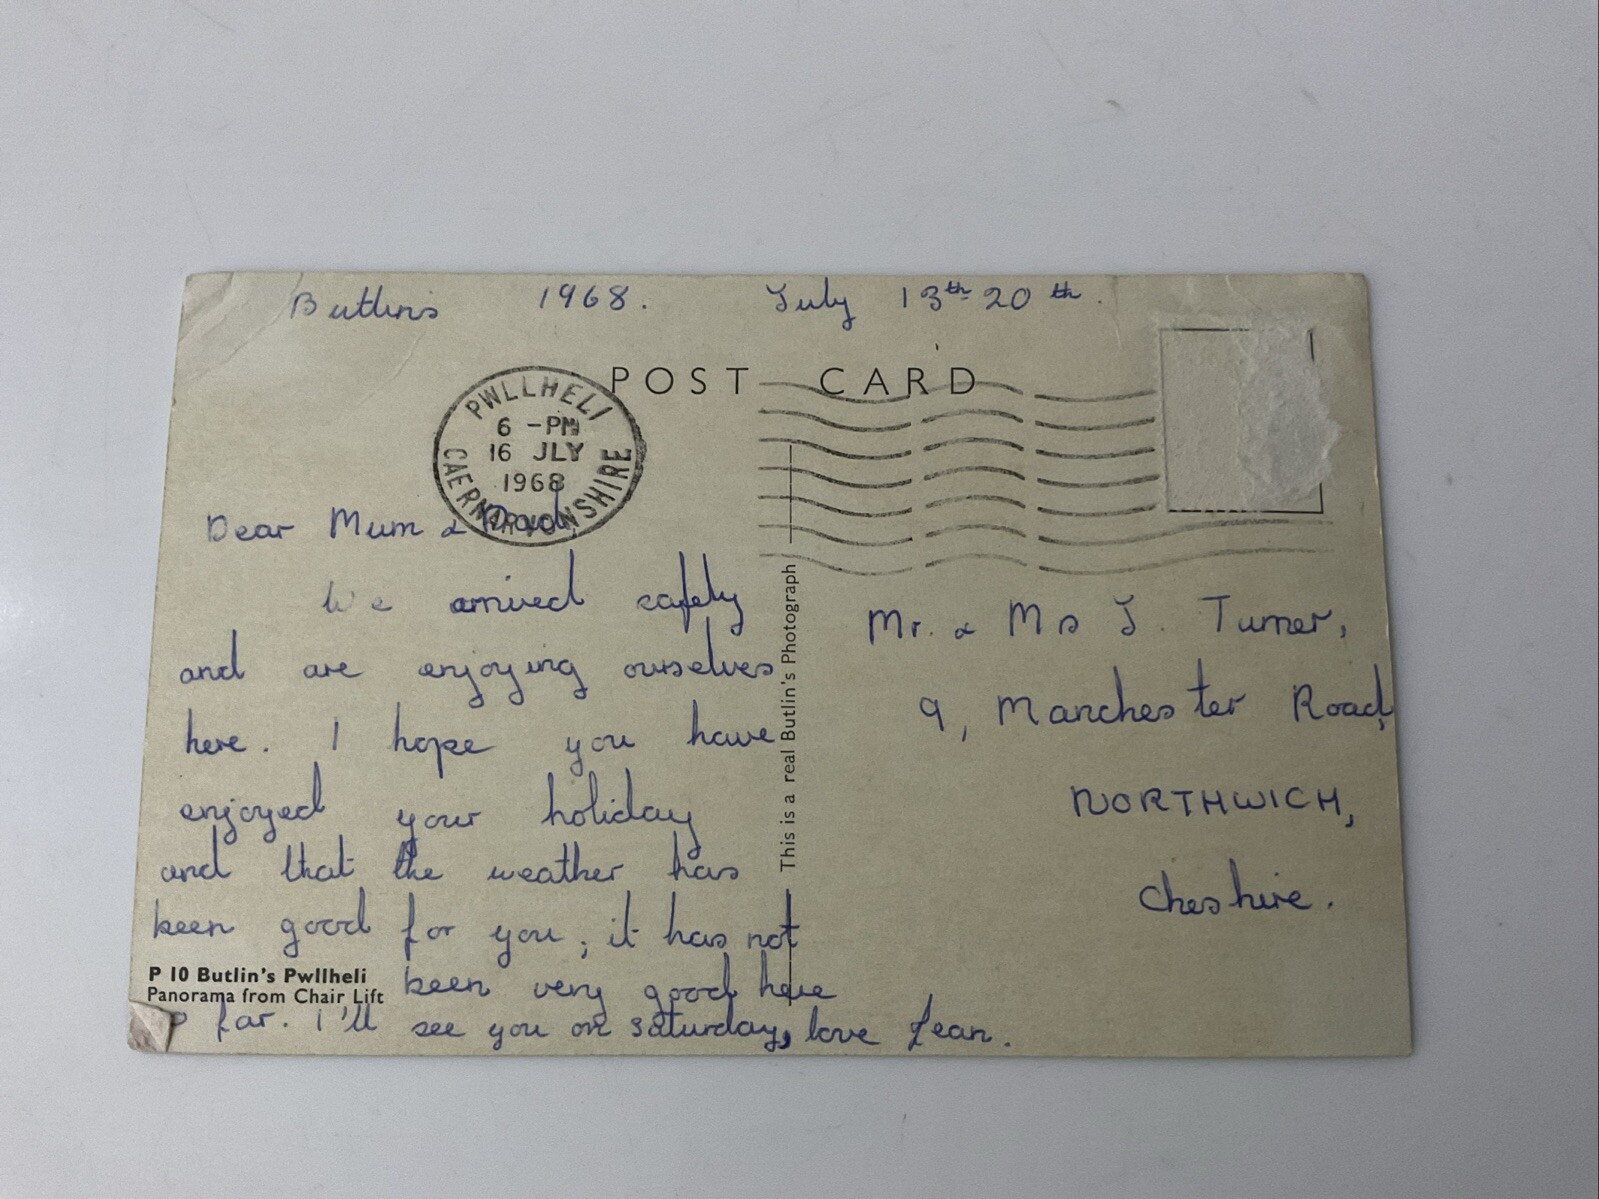 Butlins 1968. July 13th 20th.
POST CARD
PWLLHELI
6 - PM
16 JLY
1968
CAERNARVONSHIRE
Dear Mum & Dad,
We arrived safely
and are enjoying ourselves
here. I hope you have
enjoyed your holiday
and that the weather has
been good for you, it has not
been very good here
far. I'll see you on saturday, love Jean.
P 10 Butlin's Pwllheli
Panorama from Chair Lift
This is a real Butlin's Photograph
Mr. & Mrs J. Turner,
9, Manchester Road,
NORTHWICH,
Cheshire.